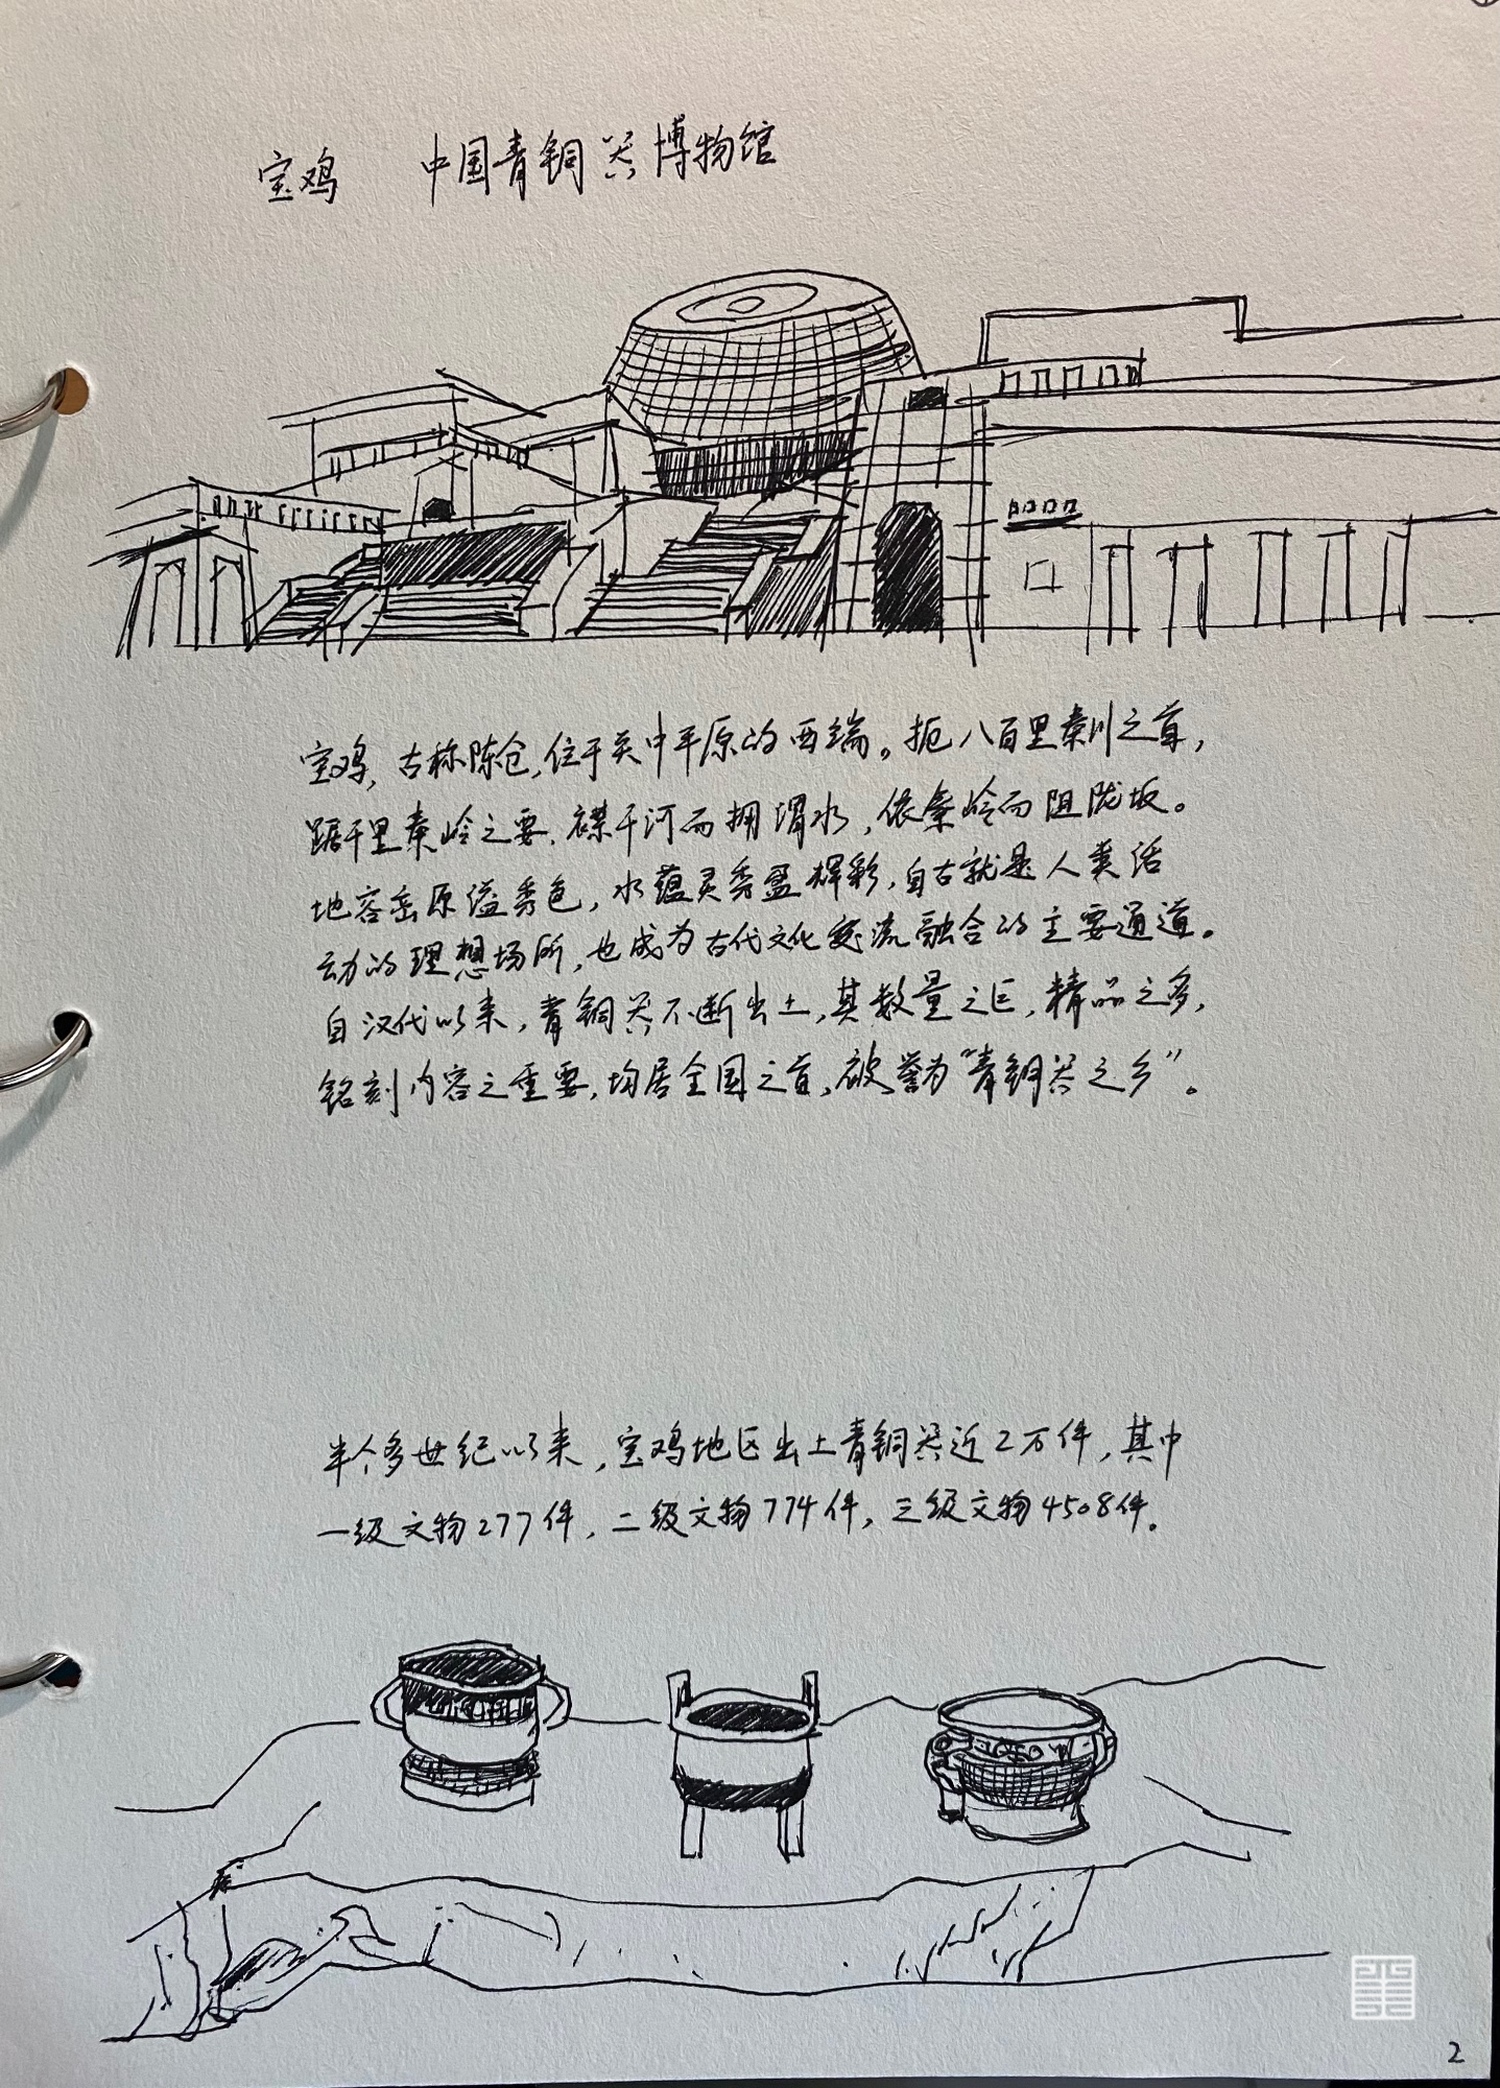 宝鸡 中国青铜器博物馆
宝鸡,古称陈仓,位于关中平原的西端。扼八百里秦川之首,
踞千里秦岭之要,襟千河而拥渭水,依秦岭而阻陇坂。
地容岳原溢秀色,水蕴灵秀盈辉彩,自古就是人类活
动的理想场所,也成为古代文化交流融合的主要通道。
自汉代以来,青铜器不断出土,其数量之巨,精品之多,
铭刻内容之重要,均居全国之首,被誉为“青铜器之乡”。
半个多世纪以来,宝鸡地区出土青铜器近2万件,其中
一级文物277件,二级文物774件,三级文物4508件。
2